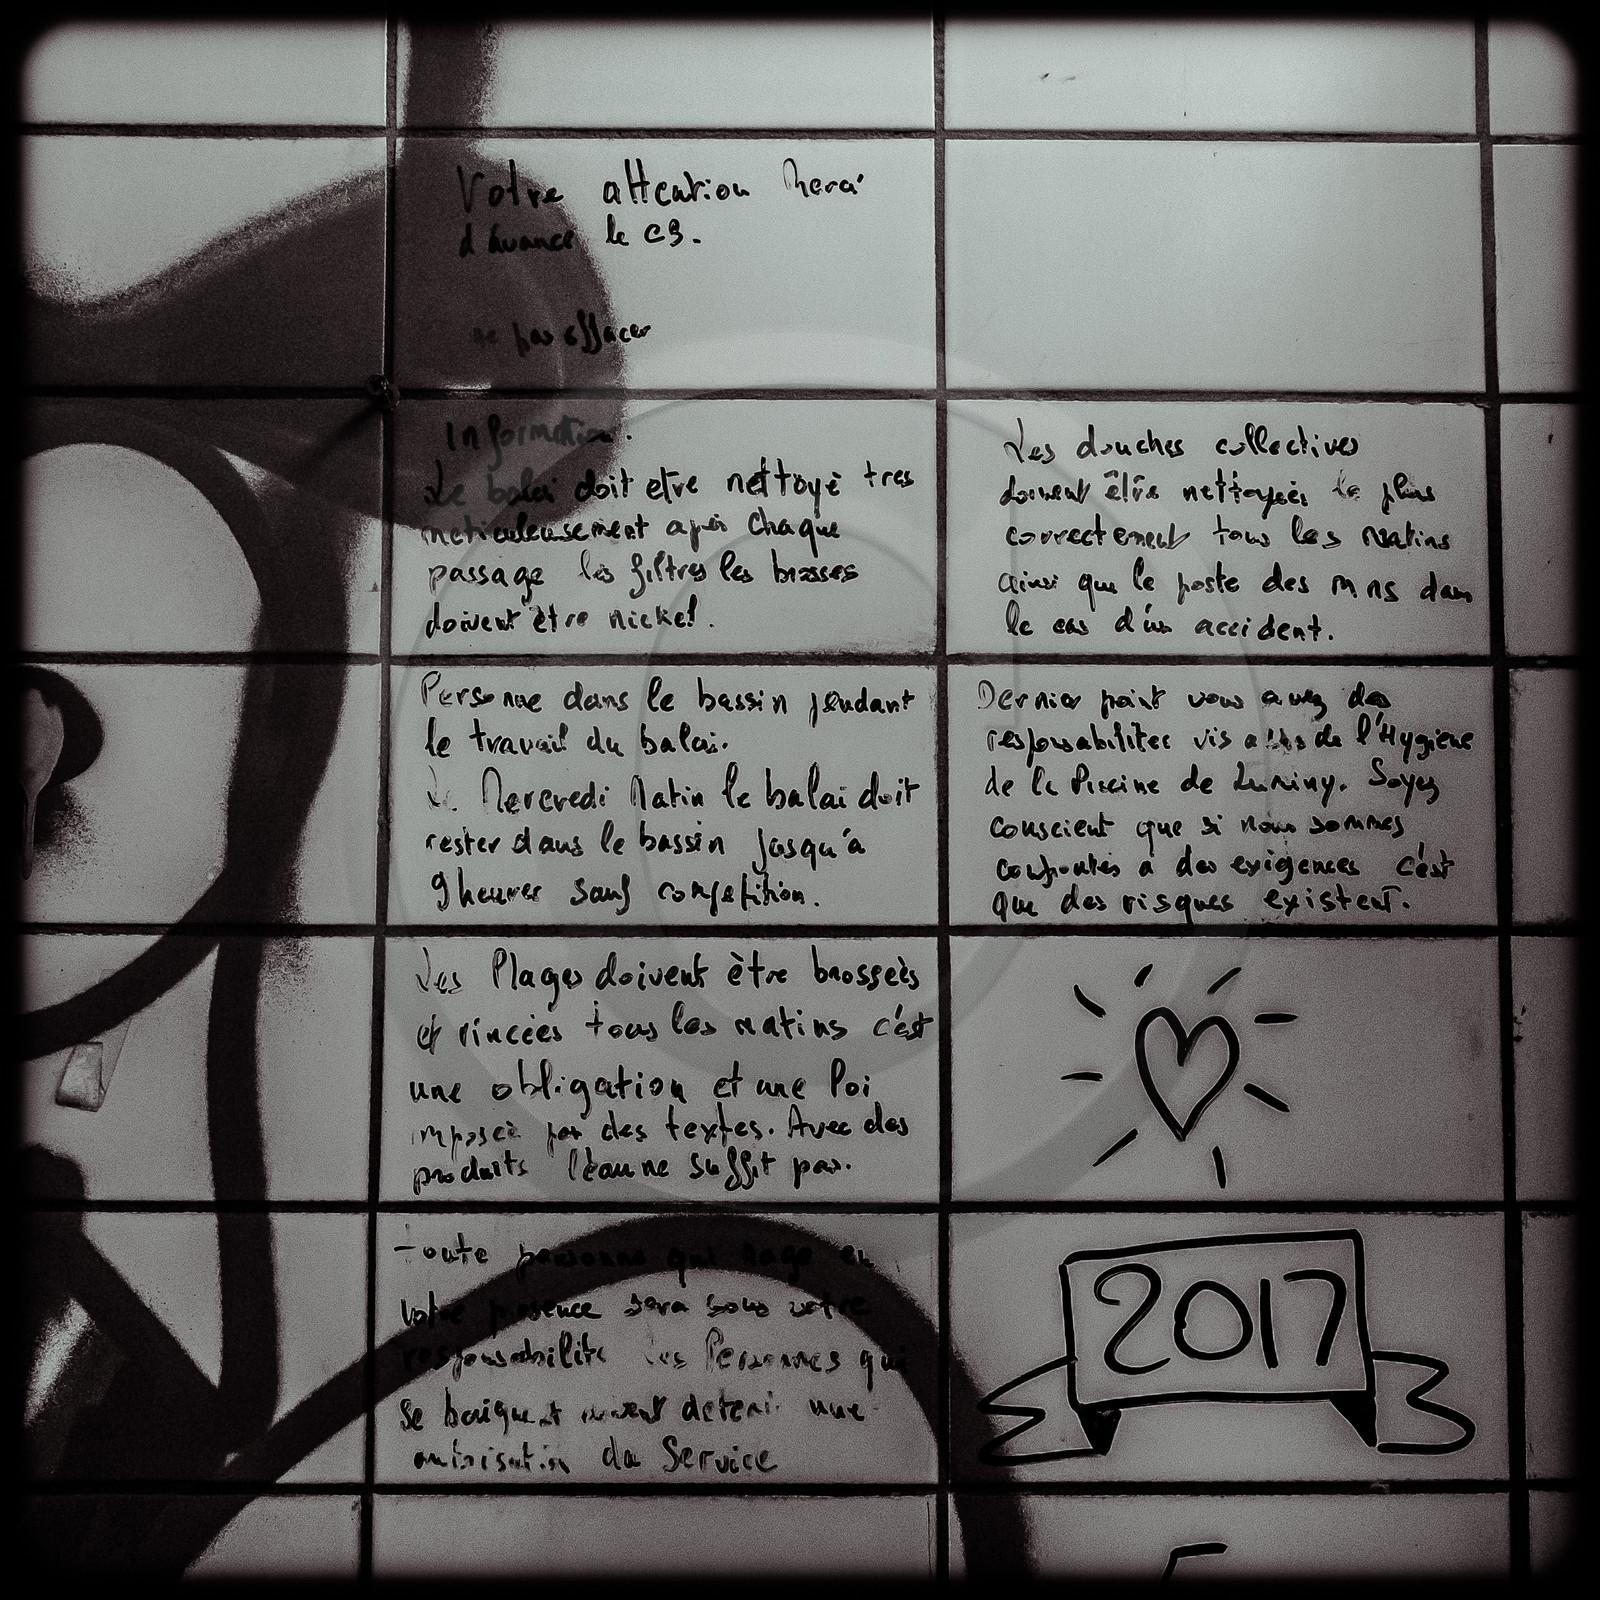 Votre attention Merci
d'avance le CB.
ne pas effacer
Information.
Le balai doit etre nettoyé tres
meticuleusement après chaque
passage les filtres les brosses
doivent être nickel.
Personne dans le bassin pendant
le travail du balai.
Le Mercredi Matin le balai doit
rester dans le bassin jusqu'à
9 heures sauf competition.
Les Plages doivent être brosseès
et rincées tous les matins c'est
une obligation et une loi
imposée par des textes. Avec des
produits l'eau ne suffit pas.
toute personne qui nage en
votre présence sera sous votre
responsabilité Les Personnes qui
se baignent doivent detenir une
autorisation du Service
Les douches collectives
doivent être nettoyées le plus
correctement tous les matins
ainsi que le poste des mns dans
le cas d'un accident.
Dernier point vous avez des
responsabilitées vis a vis de l'Hygiene
de la Piscine de Luminy. Soyez
conscient que si nous sommes
confrontés a des exigences c'est
que des risques existent.
2017